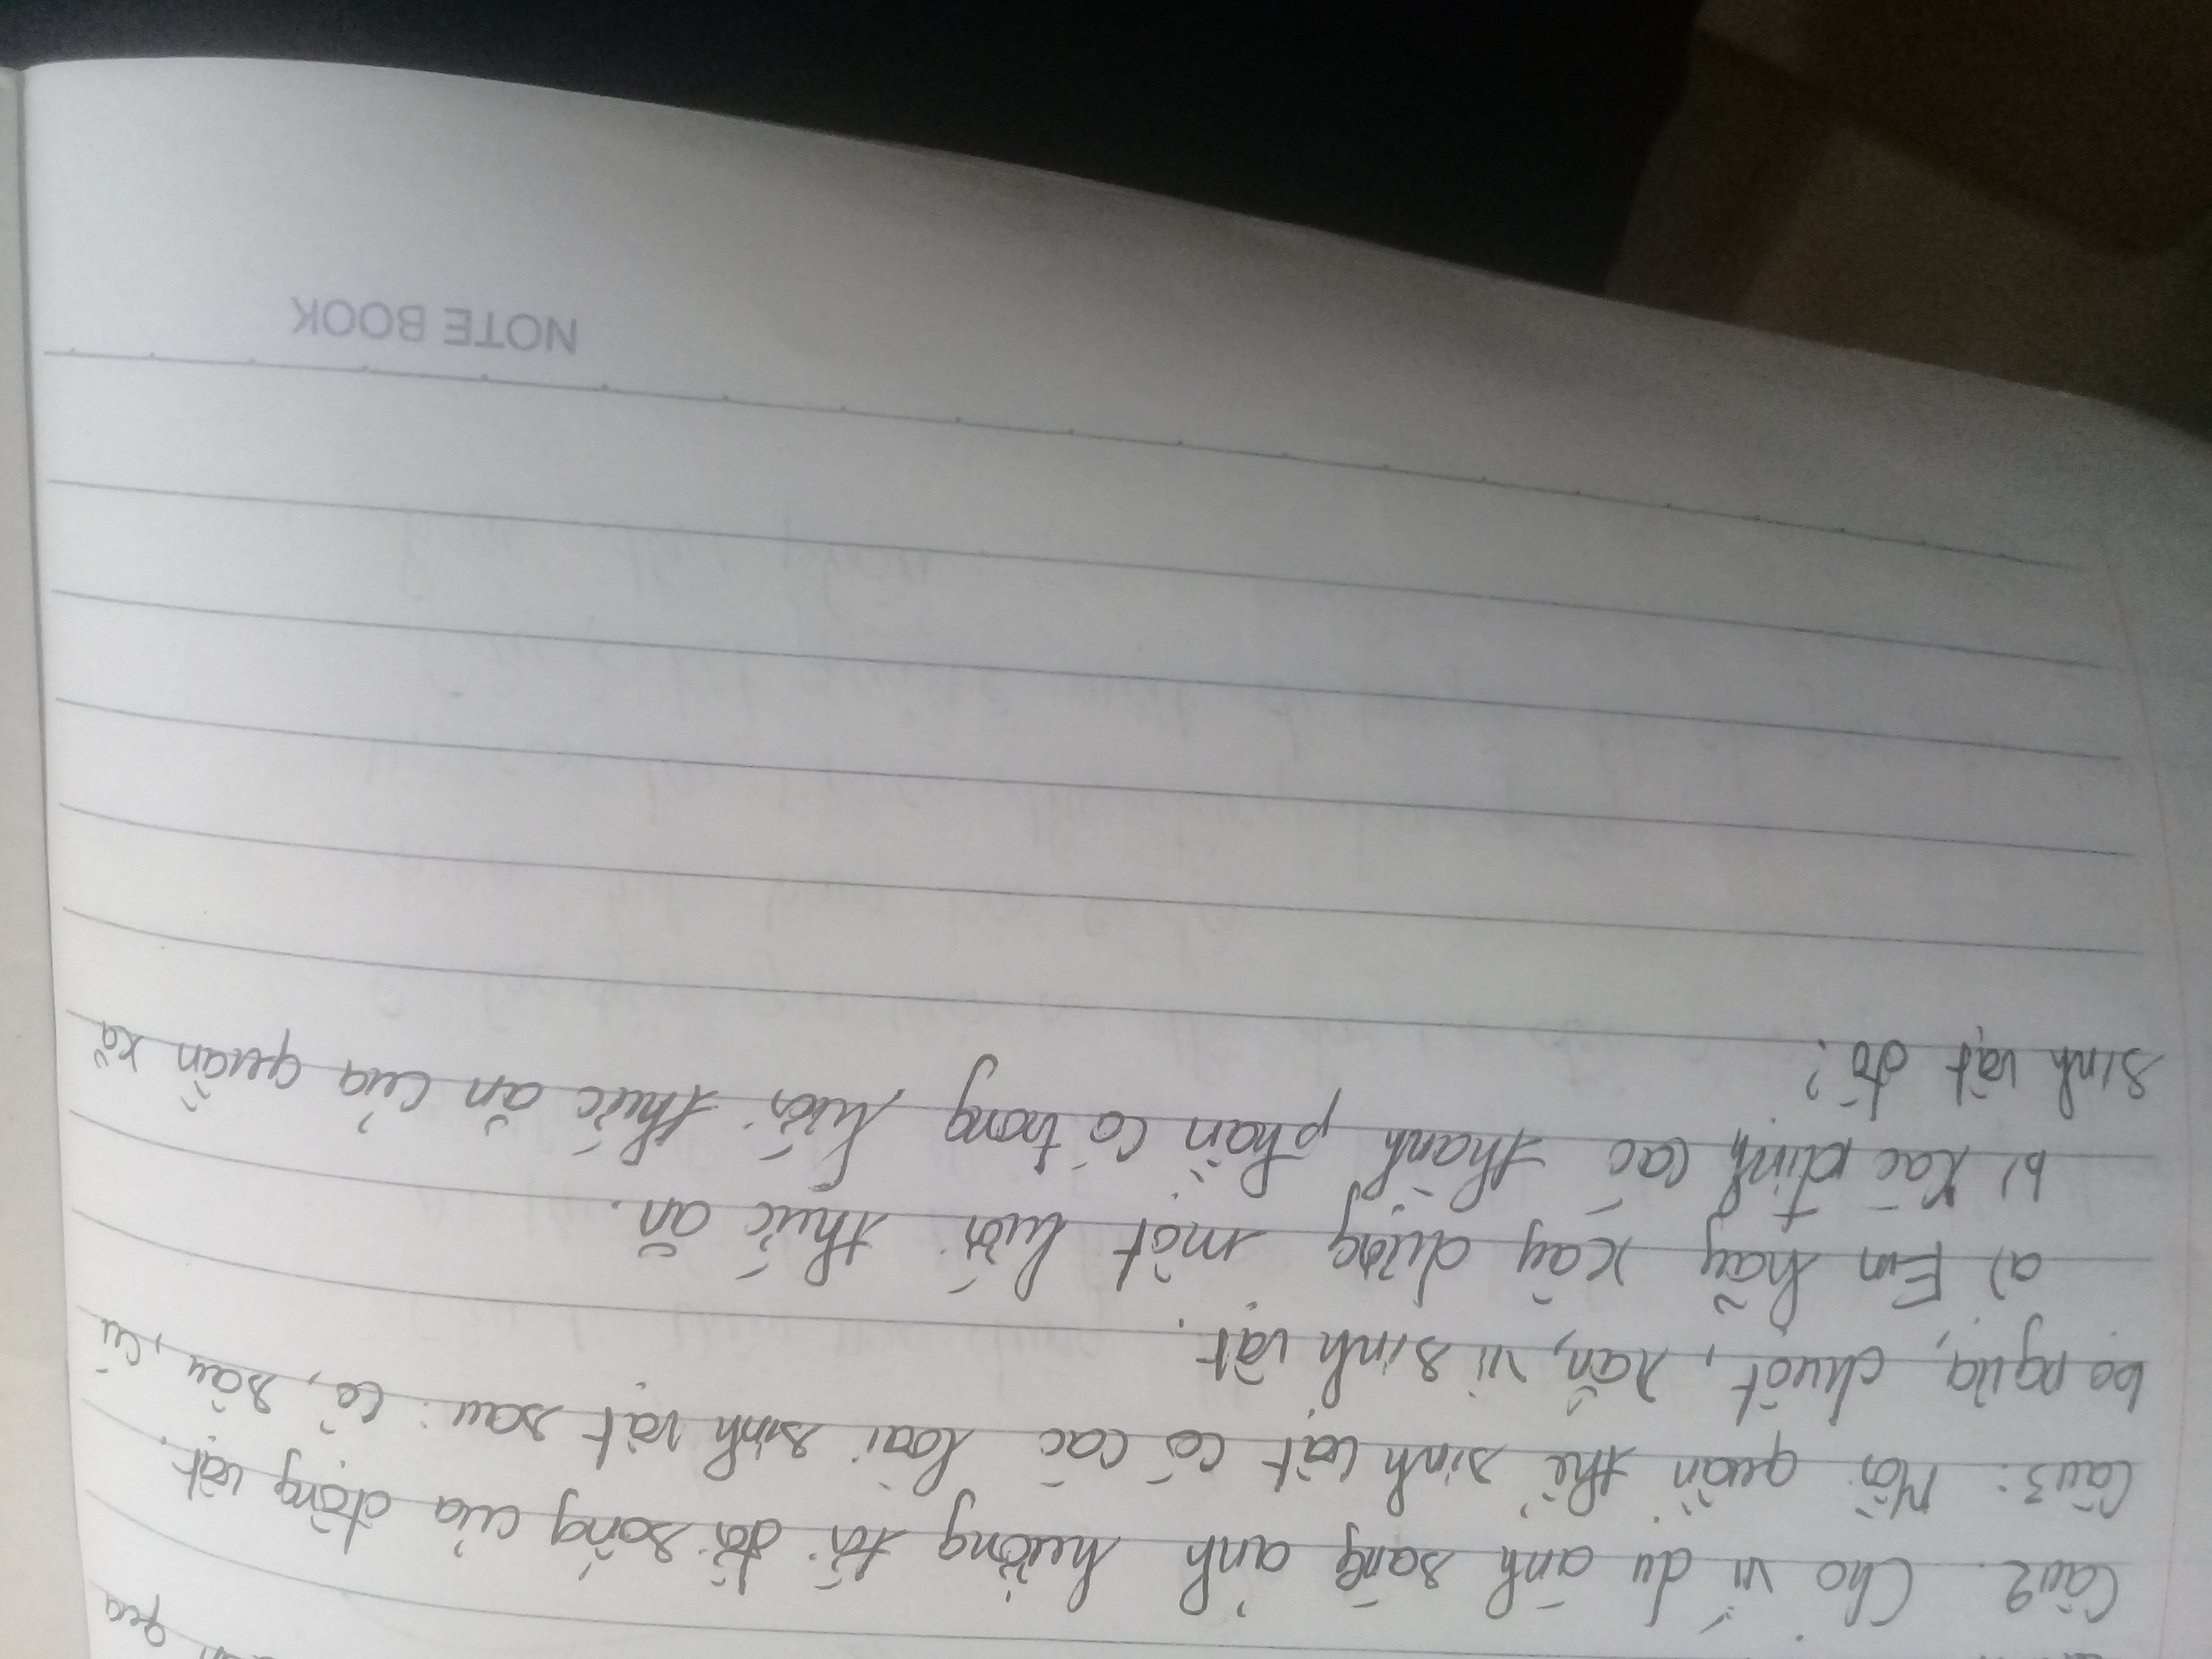 qua
Câu2. Cho ví dụ ánh sáng ảnh hưởng tới đời sống của động vật.
Câu3: Mỗi quần thể sinh vật có các loài sinh vật sau: cỏ, sâu, cú
bọ ngựa, chuột, rắn, vi sinh vật.
a) Em hãy xây dựng một lưới thức ăn.
b) Xác định các thành phần có trong lưới thức ăn của quần xã
sinh vật đó?
NOTE BOOK